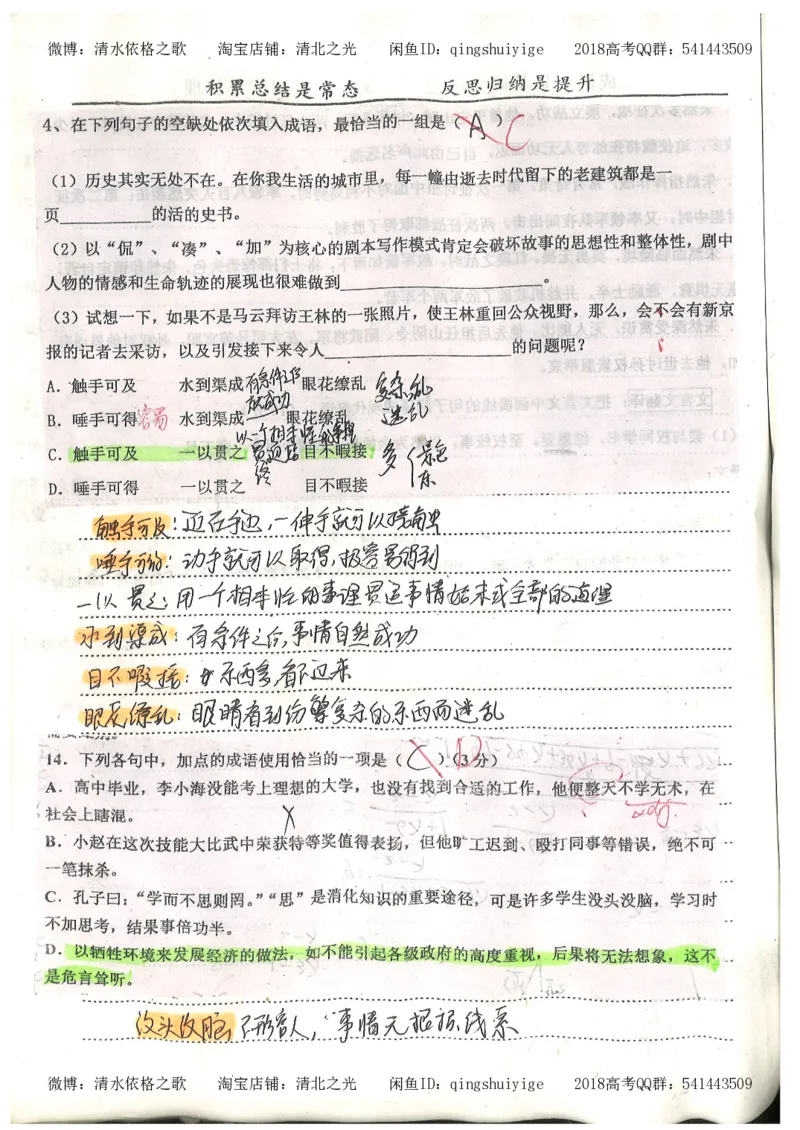 微博：清水依格之歌 淘宝店铺：清北之光 闲鱼ID：qingshuiyige 2018高考QQ群：541443509
积累总结是常态 反思归纳是提升
4、在下列句子的空缺处依次填入成语，最恰当的一组是（A）C
（1）历史其实无处不在。在你我生活的城市里，每一幢由逝去时代留下的老建筑都是一
页__________的活的史书。
（2）以“侃”、“凑”、“加”为核心的剧本写作模式肯定会破坏故事的思想性和整体性，剧中
人物的情感和生命轨迹的展现也很难做到____________________。
（3）试想一下，如果不是马云拜访王林的一张照片，使王林重回公众视野，那么，会不会有新京
报的记者去采访，以及引发接下来令人____________________的问题呢？
A．触手可及 水到渠成 有条件之后就成功 眼花缭乱 复杂，乱
B．唾手可得 容易 水到渠成 眼花缭乱 迷乱
C．触手可及 一以贯之 目不暇接 多
D．唾手可得 一以贯之 目不暇接
触手可及：近在手边，一伸手就可以接触
唾手可得：动手就可以取得，极容易得到
一以贯之：用一个根本性的事理贯通事情始末或全部的道理
水到渠成：有条件之后，事情自然成功
目不暇接：东西多，看不过来
眼花缭乱：眼睛看到纷繁复杂的东西而迷乱
14．下列各句中，加点的成语使用恰当的一项是（C）D（3分）
A．高中毕业，李小海没能考上理想的大学，也没有找到合适的工作，他便整天不学无术，在
adj.
社会上瞎混。
B．小赵在这次技能大比武中荣获特等奖值得表扬，但他旷工迟到、殴打同事等错误，绝不可
一笔抹杀。
C．孔子曰：“学而不思则罔。”“思”是消化知识的重要途径，可是许多学生没头没脑，学习时
不加思考，结果事倍功半。
D．以牺牲环境来发展经济的做法，如不能引起各级政府的高度重视，后果将无法想象，这不
是危言耸听。
没头没脑：不形容人，事情无根据线索
微博：清水依格之歌 淘宝店铺：清北之光 闲鱼ID：qingshuiyige 2018高考QQ群：541443509